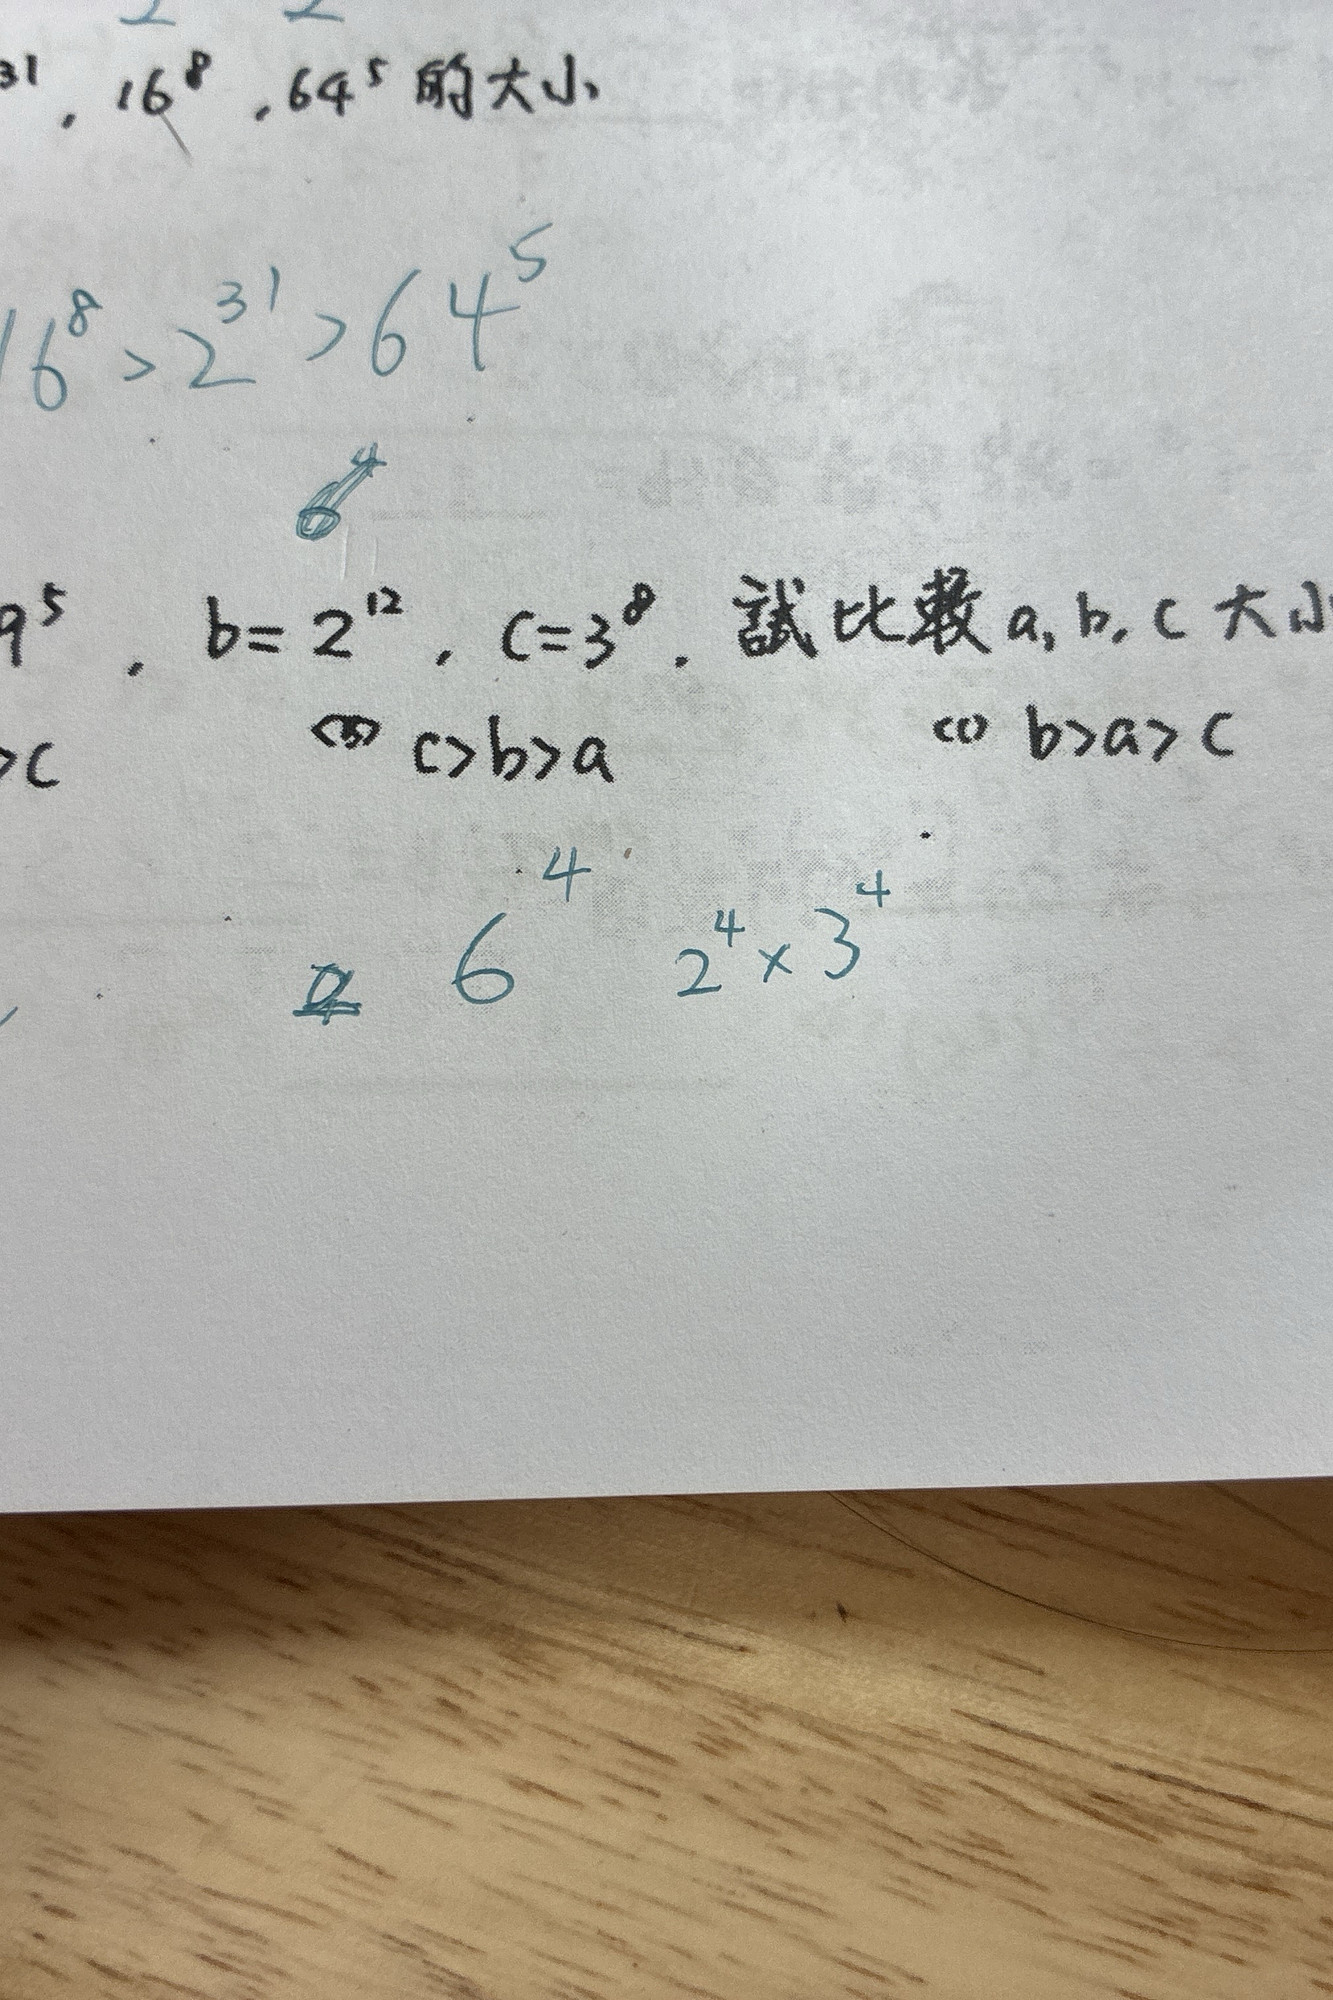 31 , 16⁸ , 64⁵ 的大小
16⁸ > 2³¹ > 64⁵
9⁵ , b = 2¹² , c = 3⁸ . 試比較 a, b, c 大小
>c (B) c>b>a (C) b>a>c
6⁴ 2⁴ × 3⁴